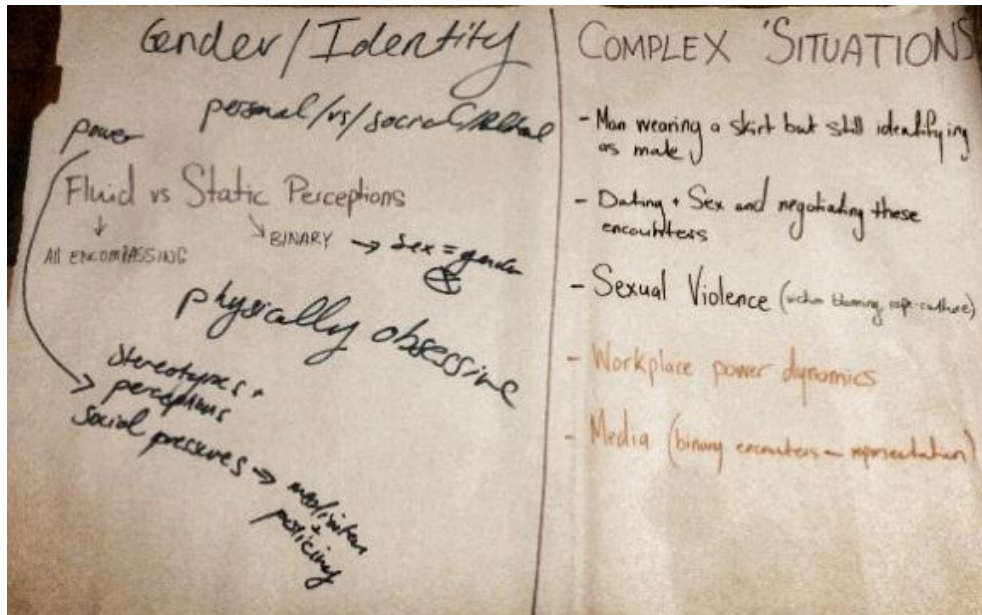 Gender/Identity
personal/vs/social/
power
Fluid vs Static Perceptions
↓ ↘ BINARY → sex = gender
All ENCOMPASSING
physically obsessive
Stereotypes +
perceptions
social pressures →
+
policing
COMPLEX SITUATIONS
- Man wearing a skirt but still identifying
as male
- Dating + Sex and negotiating these
encounters
- Sexual Violence (victim blaming, rape-culture)
- Workplace power dynamics
- Media (binary encounters – representation)